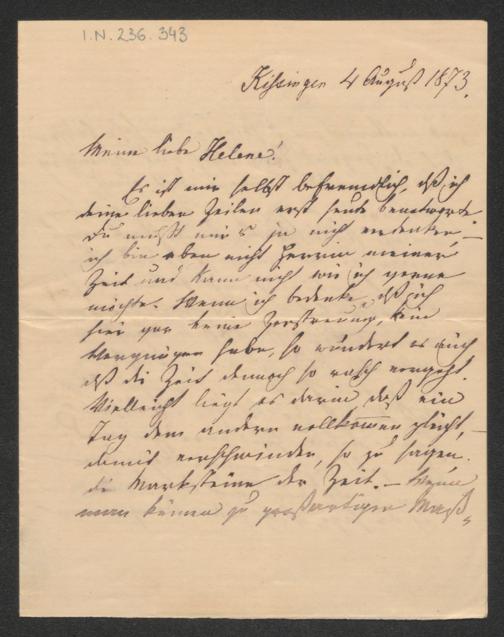 I.N. 236.343
Kissingen 4 August 1873.
Meine liebe Helene!
Es ist mir selbst befremdlich, daß ich
deine lieben Zeilen erst heute beantworte
Du mußt mir's ja nicht verdenken –
ich bin eben nicht Herrin meiner
Zeit und kann nicht wie ich gerne
möchte. Wenn ich bedenke, daß ich
hier gar keine Zerstreuung, kein
Vergnügen habe, so wundert es mich
daß die Zeit dennoch so rasch vergeht.
Vielleicht liegt es darin, daß ein
Tag dem andern vollkommen gleicht,
damit verschwinden, so zu sagen
die Marksteine der Zeit. –
man keinen zu großartigen Maß-